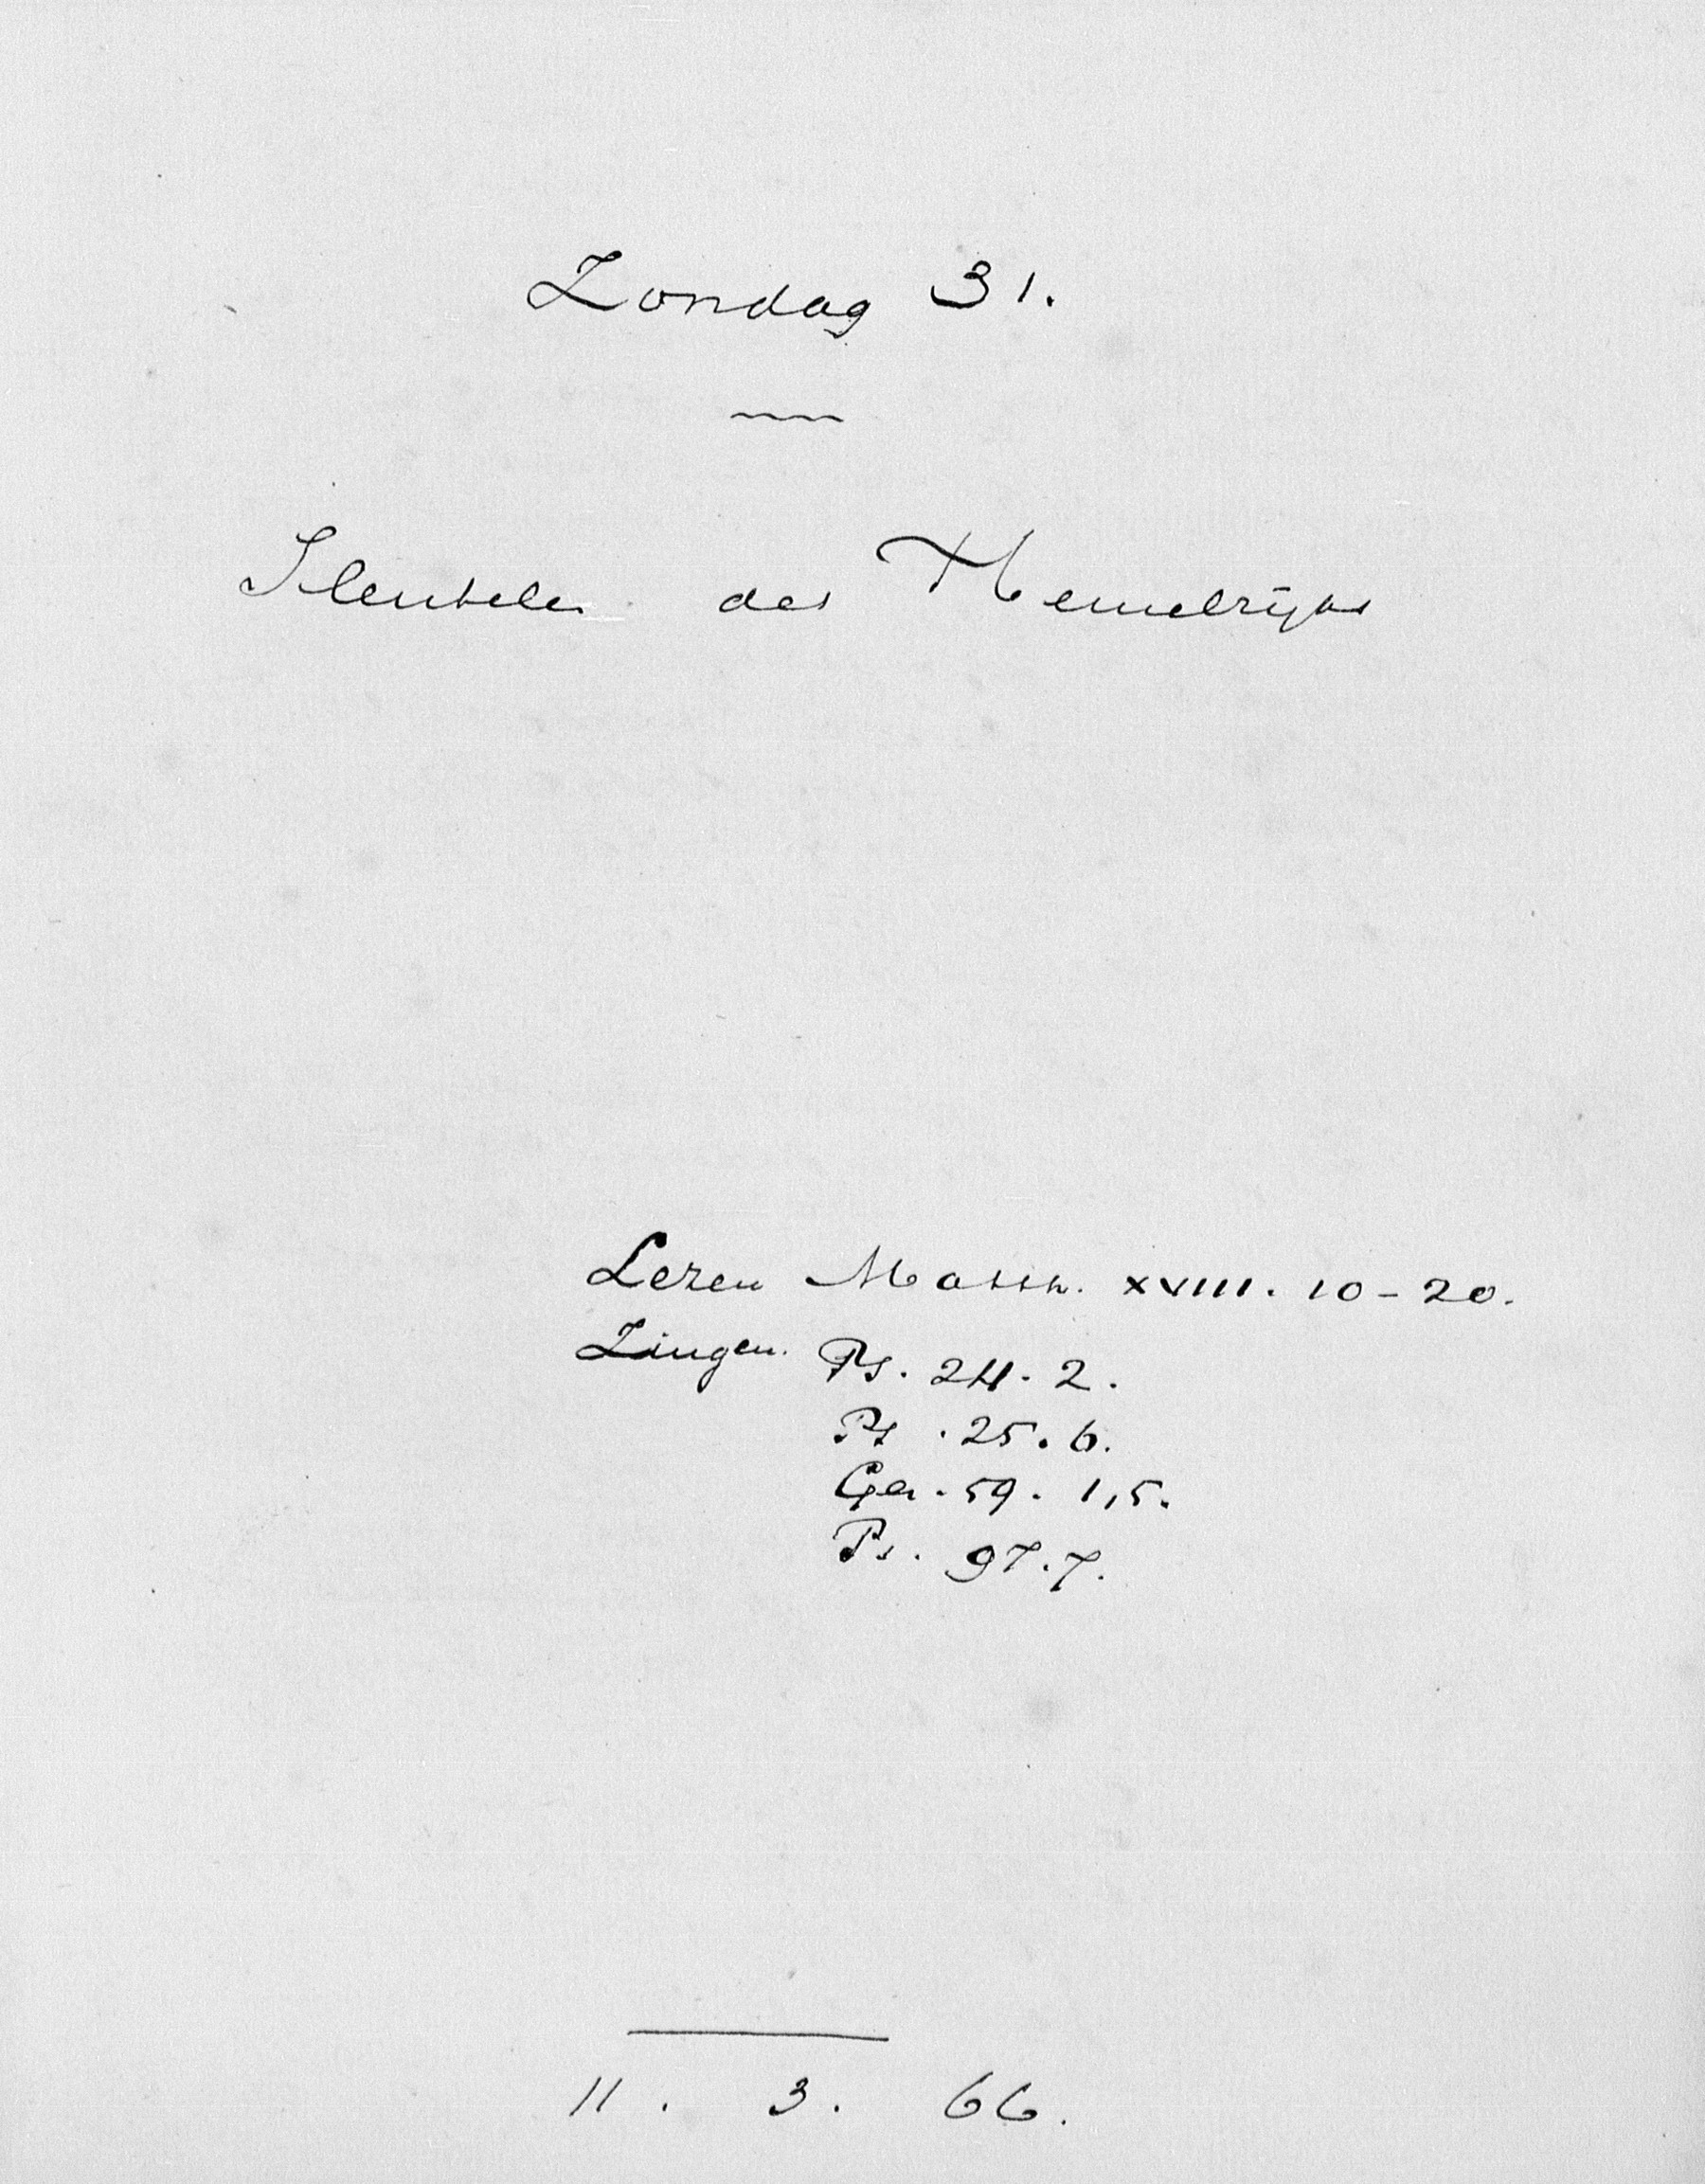 Zondag 31.
Sleutelen des Hemelrijks
Lezen Matth. XVIII. 10-20.
Zingen. Ps. 24. 2.
Ps. 25. 6.
Gez. 59. 1,5.
Ps. 97. 7.
11. 3. 66.